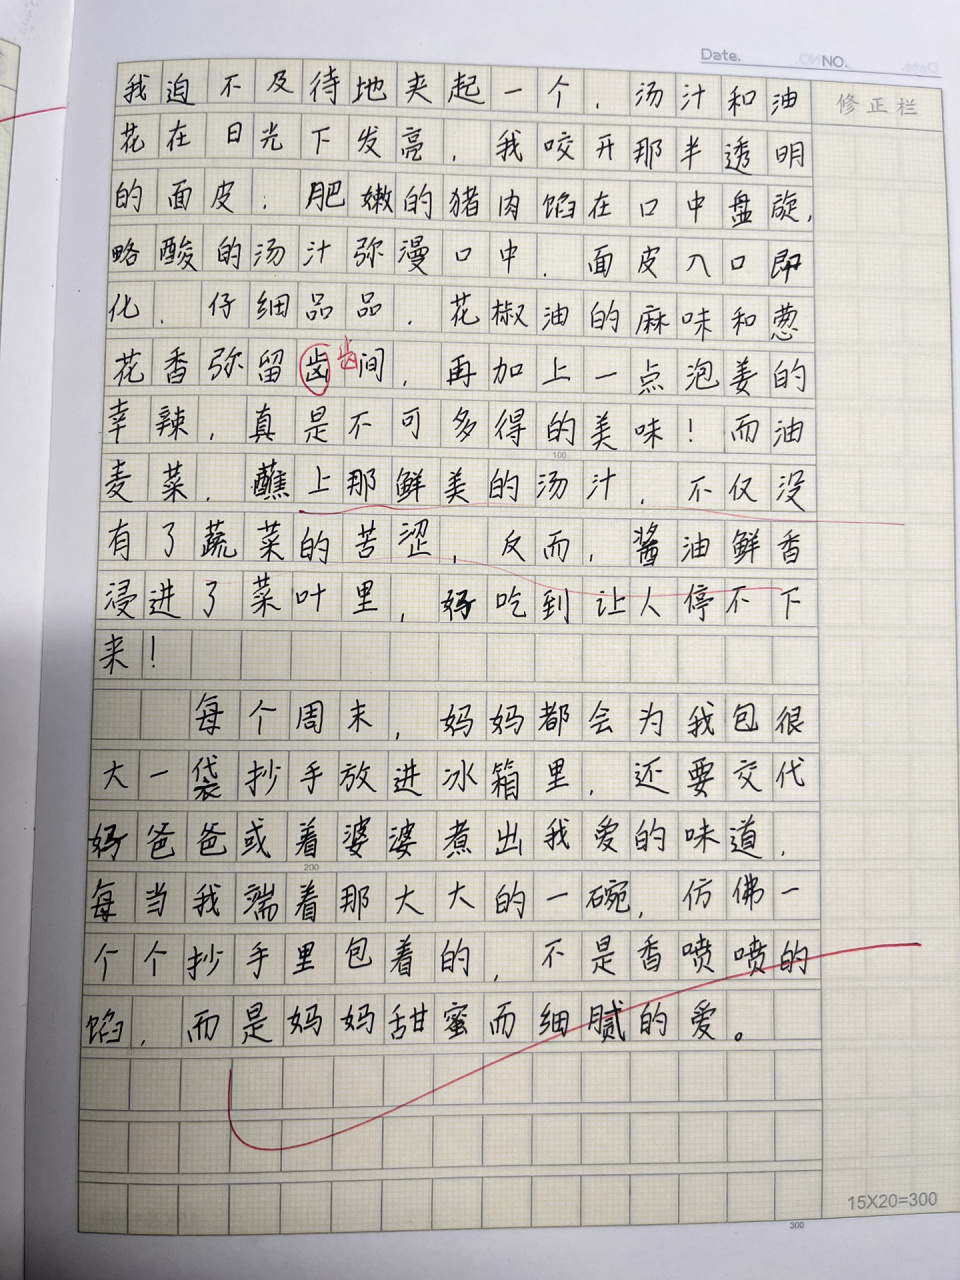 Date. NO.
我迫不及待地夹起一个，汤汁和油
修正栏
花在日光下发亮，我咬开那半透明
的面皮，肥嫩的猪肉馅在口中盘旋，
略酸的汤汁弥漫口中，面皮入口即
化，仔细品品，花椒油的麻味和葱
花香弥留齿间，再加上一点泡姜的
齿
辛辣，真是不可多得的美味！而油
100
麦菜，蘸上那鲜美的汤汁，不仅没
有了蔬菜的苦涩，反而，酱油鲜香
浸进了菜叶里，好吃到让人停不下
来！
每个周末，妈妈都会为我包很
大一袋抄手放进冰箱里，还要交代
好爸爸或着婆婆煮出我爱的味道，
200
每当我端着那大大的一碗，仿佛一
个个抄手里包着的，不是香喷喷的
馅，而是妈妈甜蜜而细腻的爱。
15X20=300
300